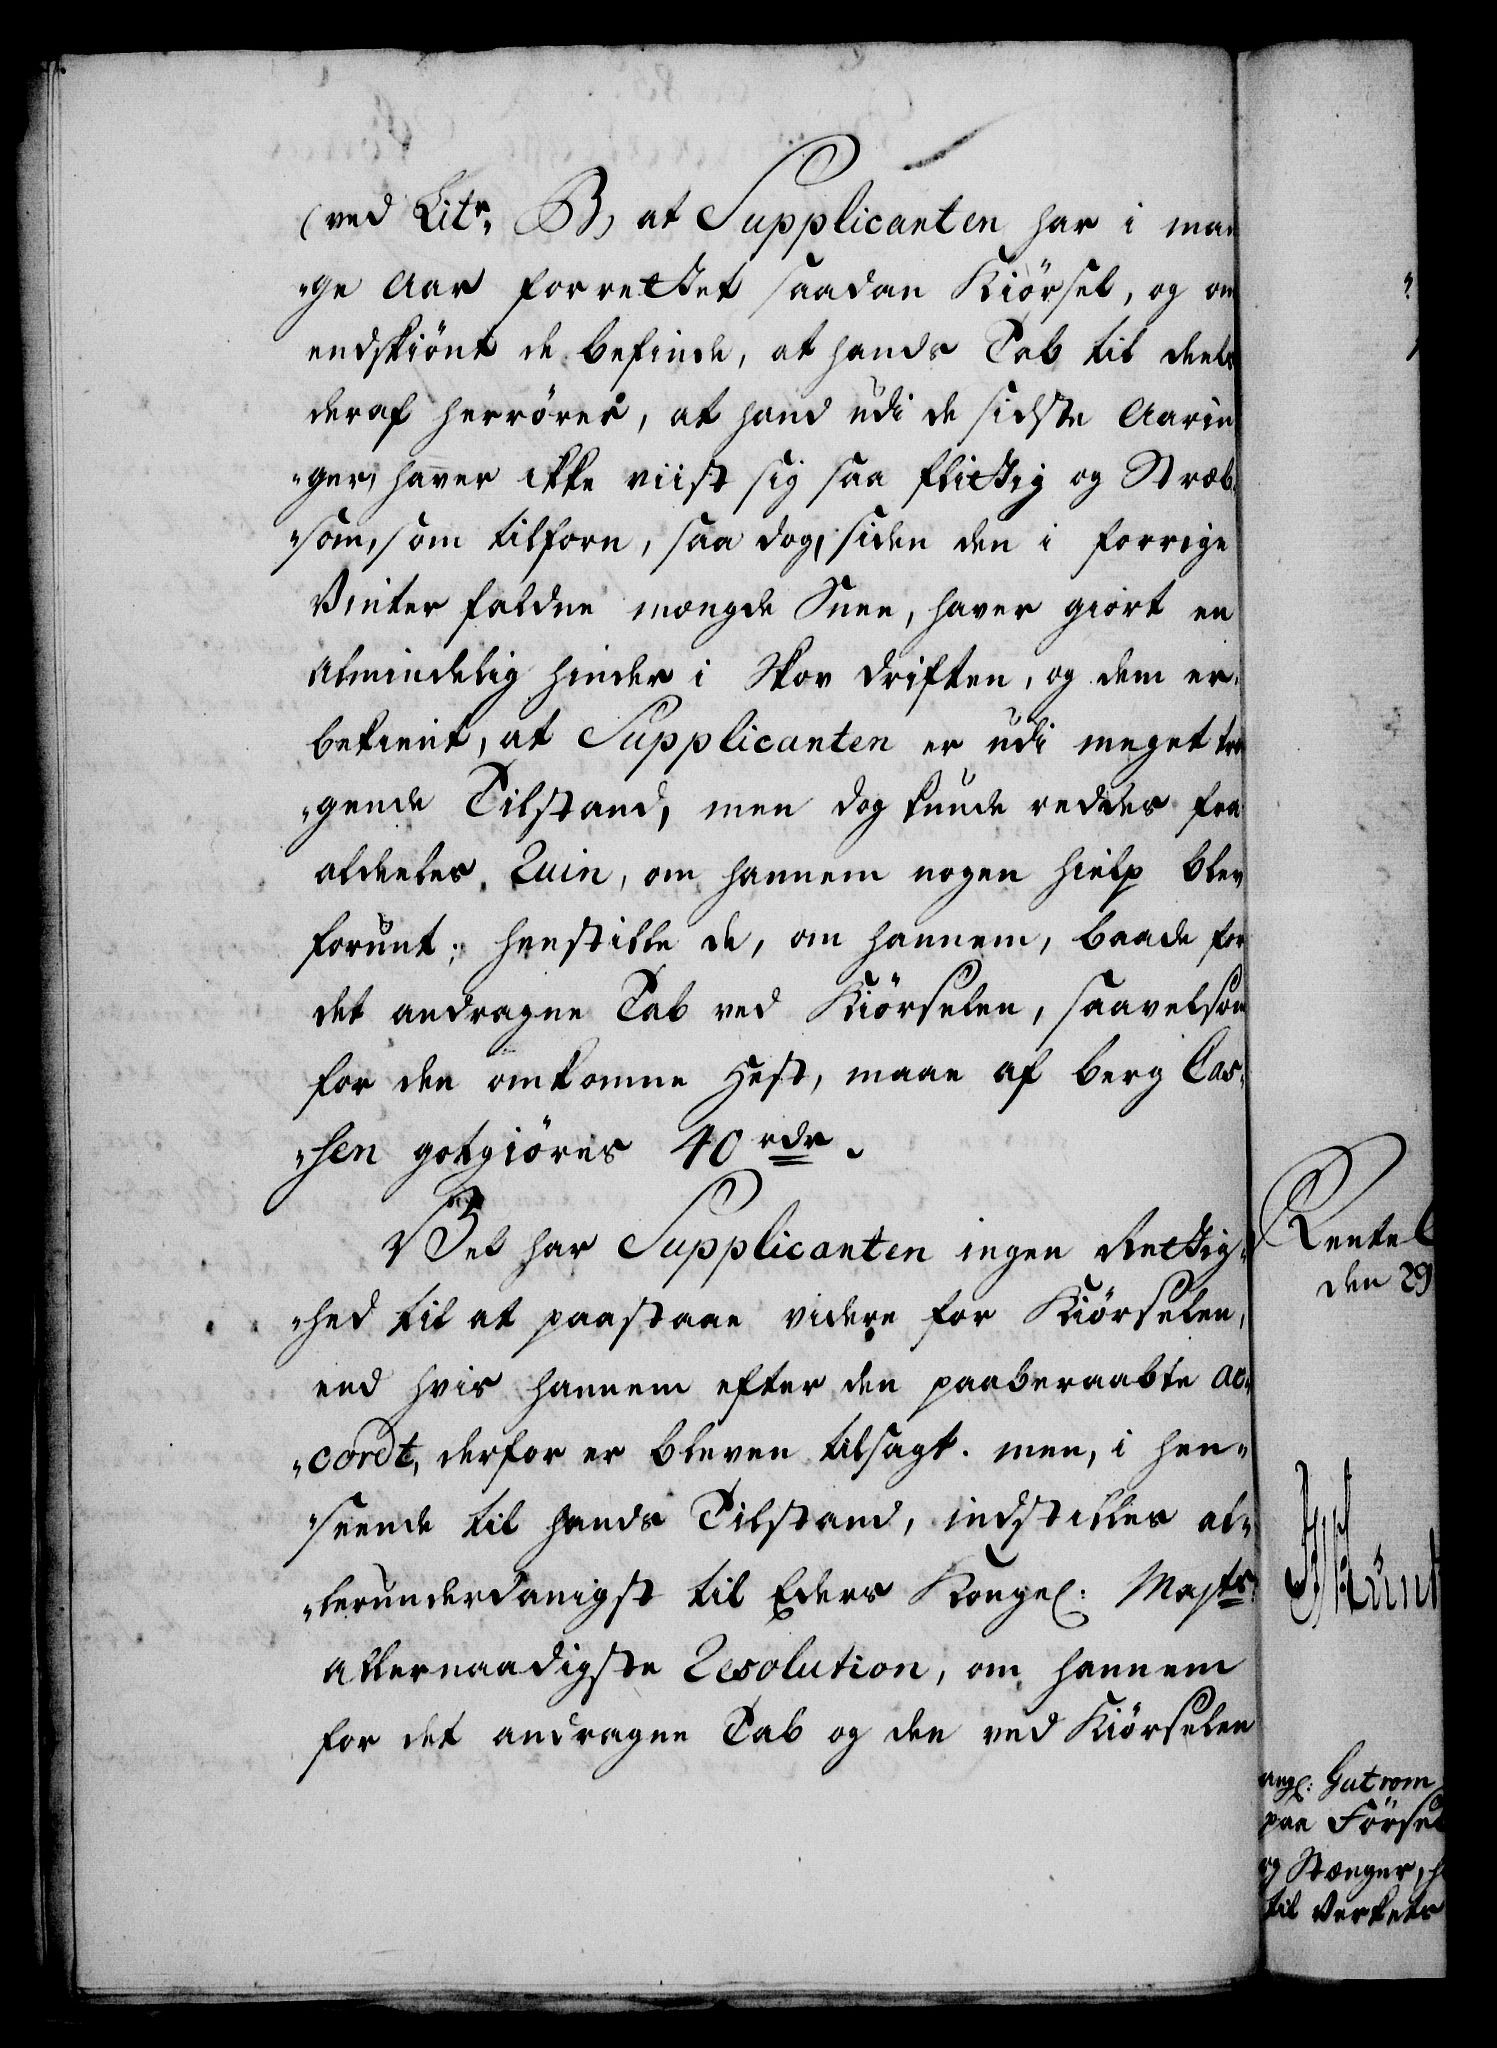 (ved Litr. B) at Supplicanten har i man
"ge Aar forrettet saadan Kiörsel, og om
endskiönt de befinde, at hands Tab til deels
deraf herrører, at hand udi de sidste Aarin
"ger, haver ikke viist sig saa flittig og Stræb-
"som, som tilforn, saa dog, siden den i forrige
Vinter faldne mængde Snee, haver giort en
Almindelig hinder i Skov driften, og dem er
bekient, at Supplicanten er udi meget træn
"gende Tilstand, men dog kunde reddes fra
aldeeles Ruin, om hannem nogen hielp blev
forunt; henstille de, om hannem, baade for
det andragne Tab ved Kiörselen, saavelsom
for den omkomne Hest, maae af berg Cas-
"sen gotgiöres 40 rdr.
Vel har Supplicanten ingen Rettig-
"hed til at paastaae videre for Kiörselen,
end hvis hannem efter den paaberaabte ac-
"cordt, derfor er bleven tilsagt. men, i hen-
"seende til hands Tilstand, indstilles al-
"lerunderdanigst til Eders Kongel: Mayts
allernaadigste Resolution, om hannem
for det andragne Tab og den ved Kiörselen
Rentek
den 29
ang: Gutrom
paa Förse
og Stænger, h
til Verkets